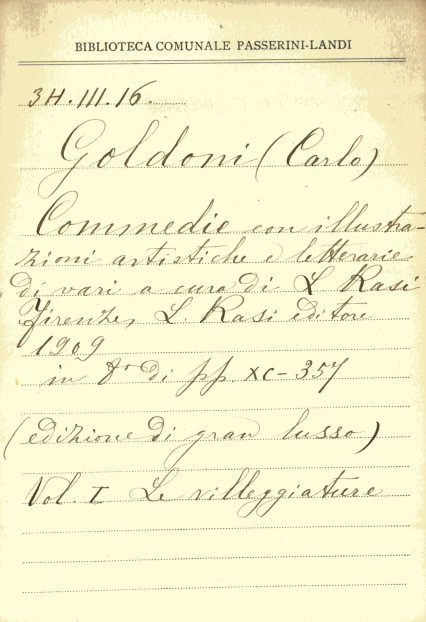 BIBLIOTECA COMUNALE PASSERINI-LANDI
3H.III.16.
Goldoni (Carlo)
Commedie con illustra-
zioni artistiche e letterarie
di vari a cura di L Rasi
Firenze, L. Rasi editore
1909
in 8° di pp. XC-357
(edizione di gran lusso)
Vol. I Le villeggiature